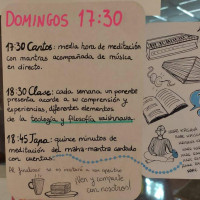 DOMINGOS 17:30
17:30 Cantos: media hora de meditación
con mantras acompañada de música
en directo.
18:30 Clase: cada semana un ponente
presenta acorde a su comprensión
y experiencias, diferentes elementos
de la teología y filosofía vaishnava.
18:45 Japa: quince minutos de
meditación del maha-mantra cantado
con cuentas.
¡Ven y comparte
con nosotros!